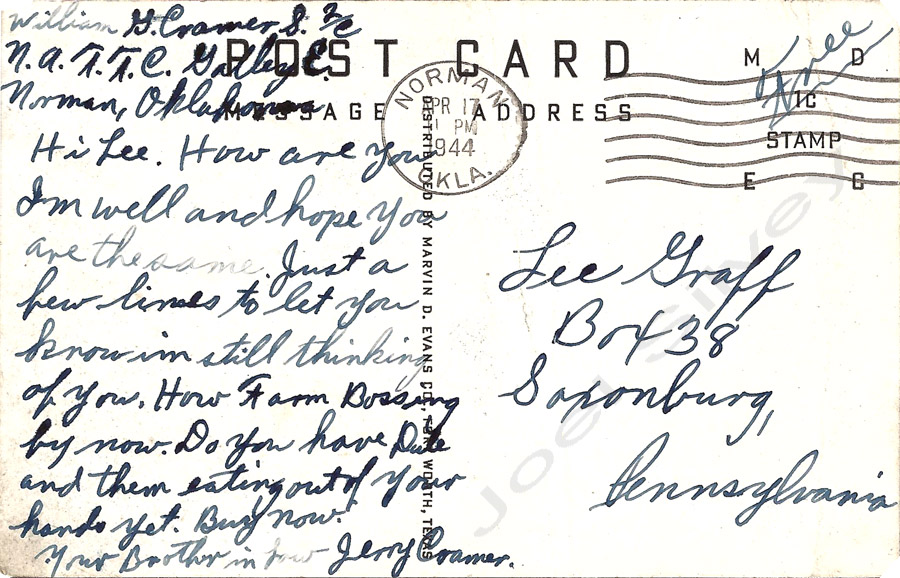 William G. Cramer S. 2/c
N.A.T.T.C. Galley
Norman, Oklahoma
POST CARD
MESSAGE
ADDRESS
NORMAN
APR 17
1 PM
1944
OKLA.
Free
M D
IC
STAMP
E
Hi Lee. How are you
I'm well and hope You
are the same. Just a
few lines to let you
know im still thinking
of You. How Farm Bossing
by now. Do You have Dale
and them eating out of Your
hands yet. Buy now.
Your Brother in law Jerry Cramer.
DISTRIBUTED BY MARVIN D. EVANS CO., FORT WORTH, TEXAS
Lee Graff
Box 38
Saxonburg,
Pennsylvania
Joel Silvey